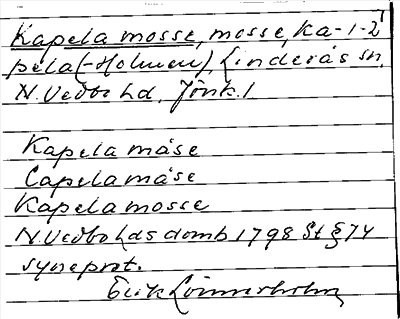 Kapela mosse, mosse, ka-1-2
pela (-Holmen), Linderås sn,
N. Vedbo hd, Jönk. l
Kapela måse
Capela måse
Kapela mosse
N. Vedbo hds domb 1798 St § 74
syneprot.
Erik Lönnerholm